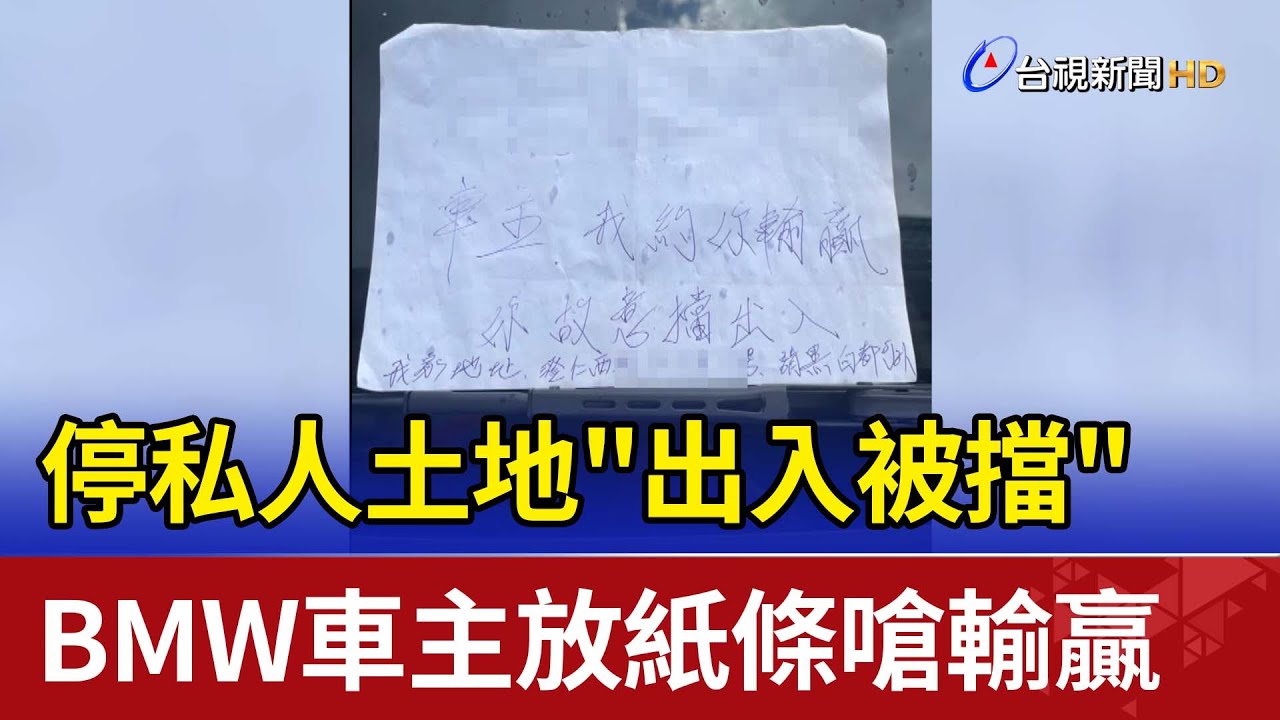 台視新聞HD
車主 我約你輸贏
你故意擋出入
我家地址.登仁西 號.疏黑白都可以
停私人土地"出入被擋"
BMW車主放紙條嗆輸贏